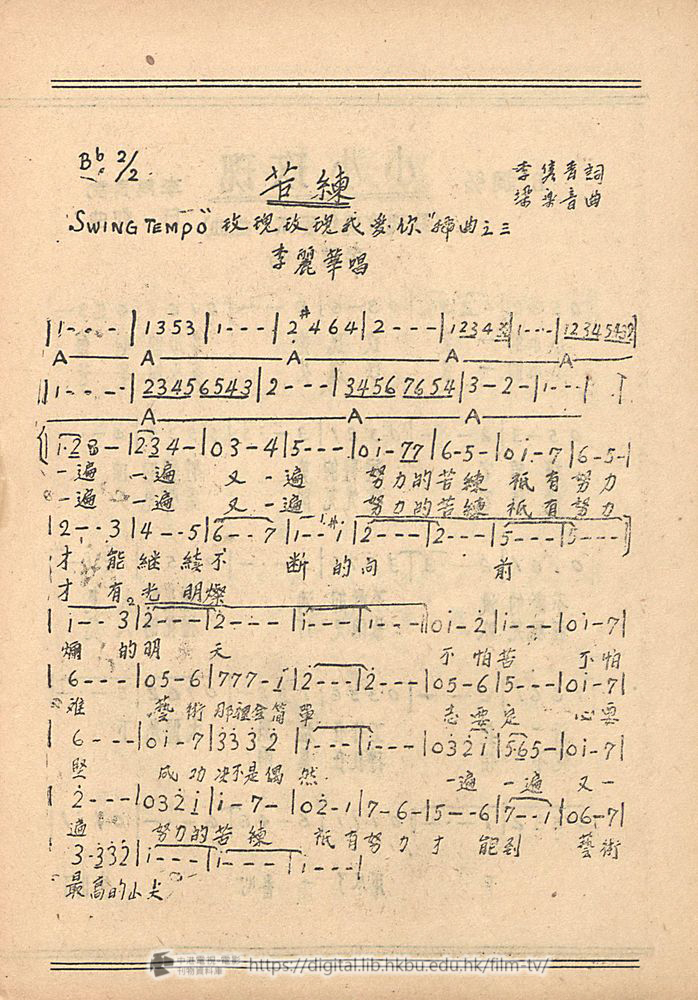 Bb 2/2
苦練
李雋青詞
梁樂音曲
"SWING TEMPO" 玫瑰玫瑰我愛你"插曲之三
李麗華唱
|1---|1353|1---|2#464|2---|
A A A A A
|1---|23456543|2---|34567654|3-2-|1---|
A A A
一遍 一遍 又一遍 努力的苦練 祇有努力
一遍 一遍 又一遍 努力的苦練 祇有努力
|2--3|4--5|6--7|
才 能繼續不 斷的向 前
才 有光明燦
|i--3|2---|2---|i---|i---|i---|0i-2|i---|0i-7|
爛 的明 天 不怕苦 不怕
|6---|05-6|777-i|2---|2---|05-6|5---|0i-7|
難 藝術那裡會簡單 志要定 心要
|6---|0i-7|3332|i---|i---|032i|565-|0i-7|
堅 成功決不是偶然 一遍一遍 又一
|2---|032i|i-7-|02-i|7-6-|5--6|7--i|06-7|
遍 努力的苦練 祇有努力才 能到 藝術
3-332|i---|i---|i---|
最高的山尖
https://digital.lib.hkbu.edu.hk/film-tv/